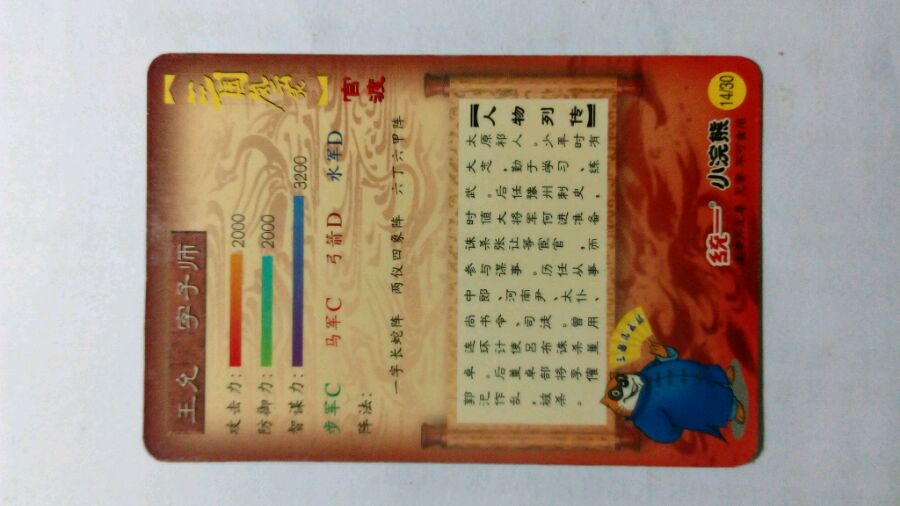 王允 字子师
三国
官渡
攻击力: 2000
防御力: 2000
智谋力: 3200
步军C 马军C 弓箭D 水军D
阵法:
一字长蛇阵 两仪四象阵 六丁六甲阵
【人物列传】
太原祁人。少年时有
大志,勤于学习、练
武。后任豫州刺史,
时值大将军何进准备
诛杀张让等宦官,而
参与谋事。历任从事
中郎、河南尹、太仆、
尚书令、司徒。曾用
连环计使吕布诛杀董
卓。后董卓部将李傕
郭汜作乱,被杀。
统一 小浣熊 14/30